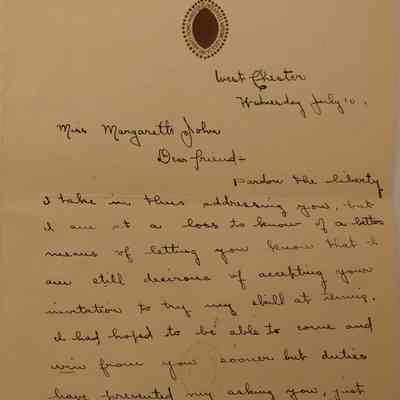 West Chester
Wednesday July 10,
Miss Margaretta John
Dear friend—
Pardon the liberty
I take in thus addressing you, but
I am at a loss to know of a better
means of letting you know that I
am still desirous of accepting your
invitation to try my skill at
I had hoped to be able to come and
win from you sooner but duties
have prevented my asking you, just